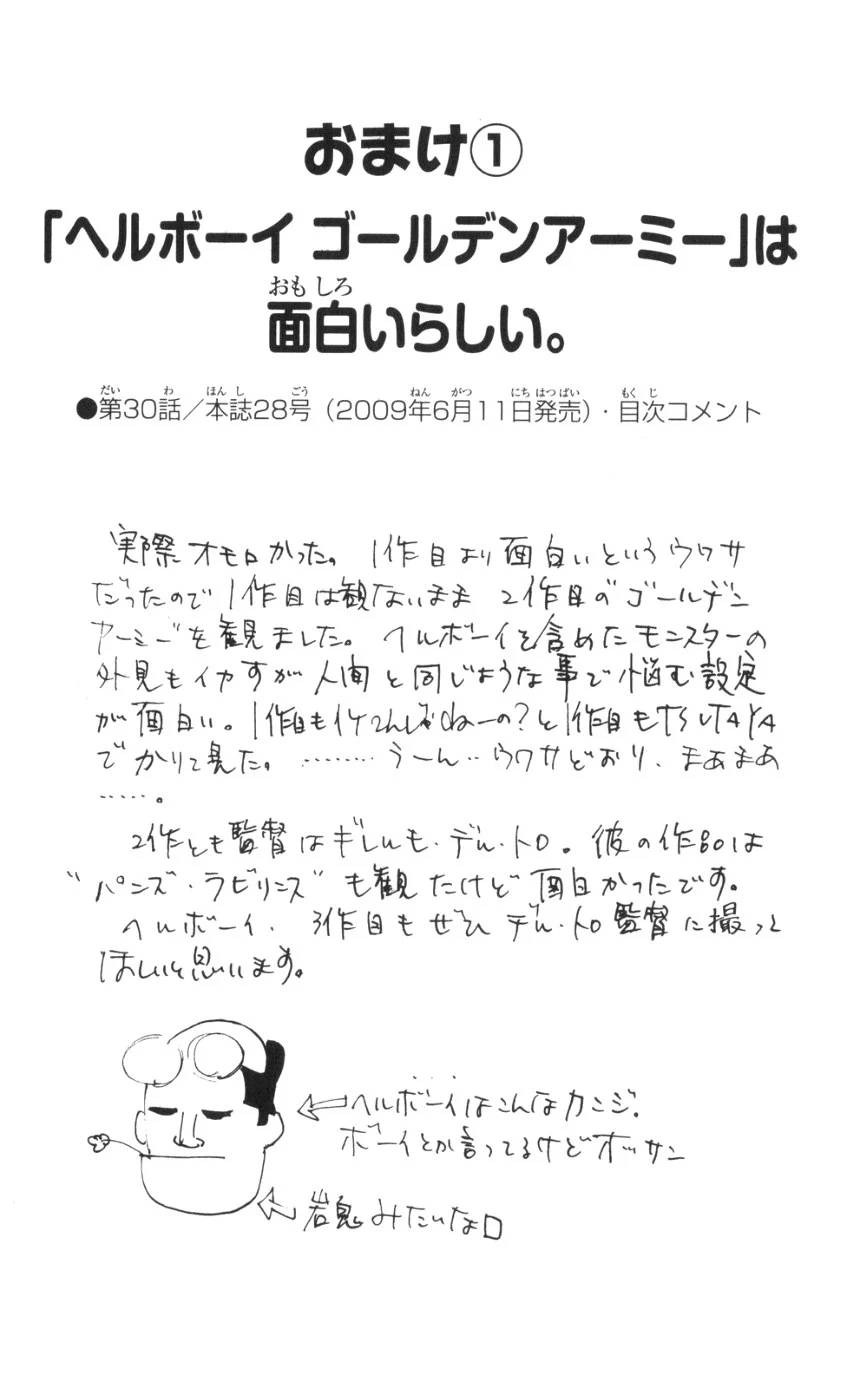 おまけ①
「ヘルボーイ ゴールデンアーミー」は
おも しろ
面白いらしい。
だい わ ほん し ごう ねん がつ にち はつばい もく じ
●第30話/本誌28号(2009年6月11日発売)・目次コメント
実際オモロかった。1作目より面白いというウワサ
だったので1作目は観ないまま 2作目の"ゴールデン
アーミー"を観ました。ヘルボーイを含めたモンスターの
外見もイカすが人間と同じような事で悩む設定
が面白い。1作目もイケてんじゃねーの?と1作目もTSUTAYA
でかりて見た。………うーん‥ウワサどおり、まあまあ
……。
2作とも監督はギレルモ・デル・トロ。彼の作品は
"パンズ・ラビリンス"も観たけど面白かったです。
ヘルボーイ、3作目もぜひデル・トロ監督に撮って
ほしいと思います。
ヘルボーイはこんなカンジ。
ボーイとか言ってるけどオッサン
岩鬼みたいな口